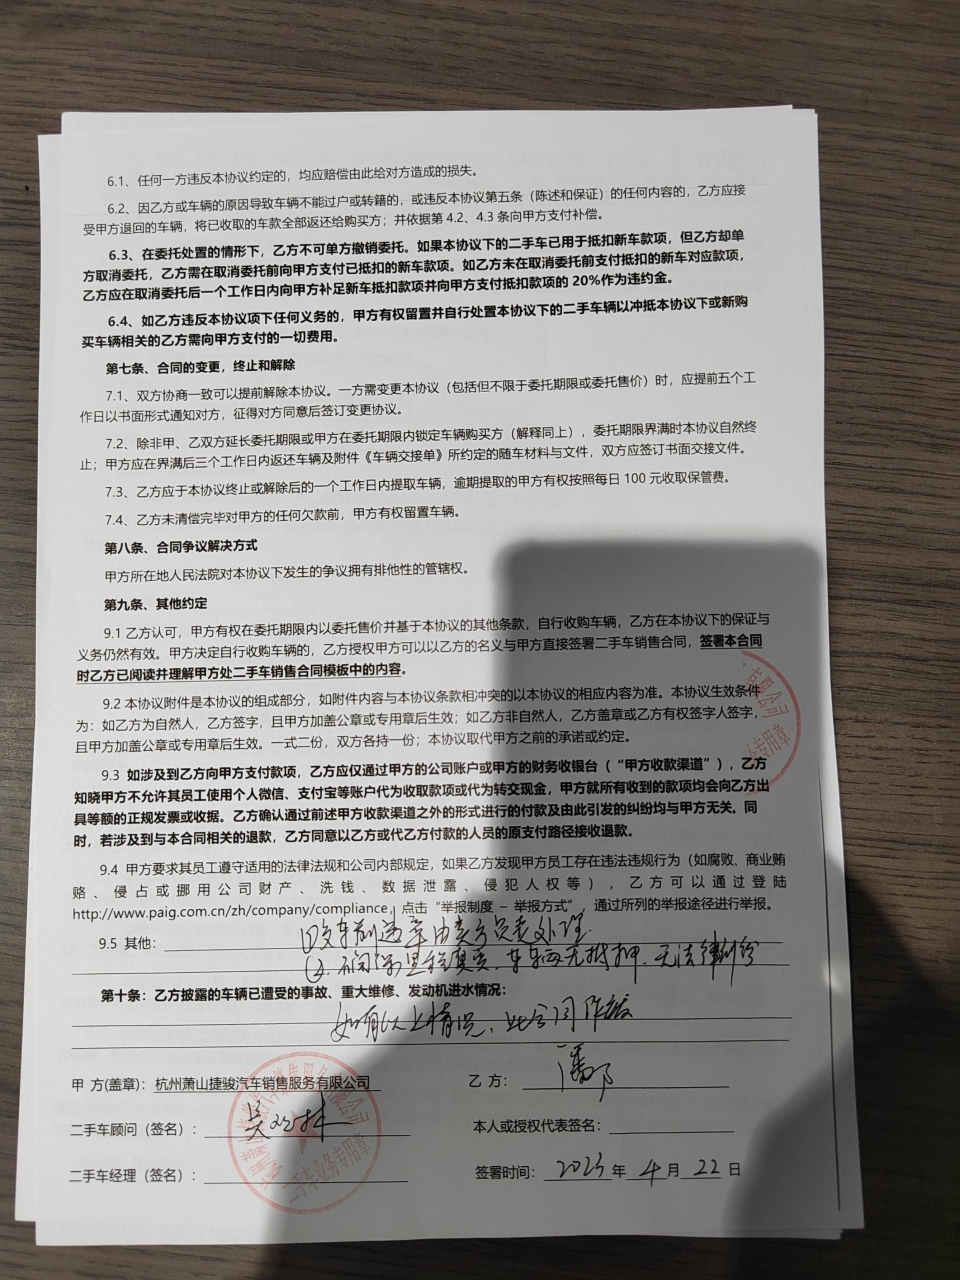 6.1、任何一方违反本协议约定的，均应赔偿由此给对方造成的损失。
6.2、因乙方或车辆的原因导致车辆不能过户或转籍的，或违反本协议第五条（陈述和保证）的任何内容的，乙方应接
受甲方退回的车辆，将已收取的车款全部返还给购买方；并依据第 4.2、4.3 条向甲方支付补偿。
6.3、在委托处置的情形下，乙方不可单方撤销委托。如果本协议下的二手车已用于抵扣新车款项，但乙方却单
方取消委托，乙方需在取消委托前向甲方支付已抵扣的新车款项。如乙方未在取消委托前支付抵扣的新车对应款项，
乙方应在取消委托后一个工作日内向甲方补足新车抵扣款项并向甲方支付抵扣款项的 20%作为违约金。
6.4、如乙方违反本协议项下任何义务的，甲方有权留置并自行处置本协议下的二手车辆以冲抵本协议下或新购
买车辆相关的乙方需向甲方支付的一切费用。
第七条、合同的变更，终止和解除
7.1、双方协商一致可以提前解除本协议。一方需变更本协议（包括但不限于委托期限或委托售价）时，应提前五个工
作日以书面形式通知对方，征得对方同意后签订变更协议。
7.2、除非甲、乙双方延长委托期限或甲方在委托期限内锁定车辆购买方（解释同上），委托期限界满时本协议自然终
止；甲方应在界满后三个工作日内返还车辆及附件《车辆交接单》所约定的随车材料与文件，双方应签订书面交接文件。
7.3、乙方应于本协议终止或解除后的一个工作日内提取车辆，逾期提取的甲方有权按照每日 100 元收取保管费。
7.4、乙方未清偿完毕对甲方的任何欠款前，甲方有权留置车辆。
第八条、合同争议解决方式
甲方所在地人民法院对本协议下发生的争议拥有排他性的管辖权。
第九条、其他约定
9.1 乙方认可，甲方有权在委托期限内以委托售价并基于本协议的其他条款，自行收购车辆，乙方在本协议下的保证与
义务仍然有效。甲方决定自行收购车辆的，乙方授权甲方可以以乙方的名义与甲方直接签署二手车销售合同，签署本合同
时乙方已阅读并理解甲方处二手车销售合同模板中的内容。
9.2 本协议附件是本协议的组成部分，如附件内容与本协议条款相冲突的以本协议的相应内容为准。本协议生效条件
为：如乙方为自然人，乙方签字，且甲方加盖公章或专用章后生效；如乙方非自然人，乙方盖章或乙方有权签字人签字，
且甲方加盖公章或专用章后生效。一式二份，双方各持一份；本协议取代甲方之前的承诺或约定。
9.3 如涉及到乙方向甲方支付款项，乙方应仅通过甲方的公司账户或甲方的财务收银台（“甲方收款渠道”），乙方
知晓甲方不允许其员工使用个人微信、支付宝等账户代为收取款项或代为转交现金，甲方就所有收到的款项均会向乙方出
具等额的正规发票或收据。乙方确认通过前述甲方收款渠道之外的形式进行的付款及由此引发的纠纷均与甲方无关。同
时，若涉及到与本合同相关的退款，乙方同意以乙方或代乙方付款的人员的原支付路径接收退款。
9.4 甲方要求其员工遵守适用的法律法规和公司内部规定，如果乙方发现甲方员工存在违法违规行为（如腐败、商业贿
赂、侵占或挪用公司财产、洗钱、数据泄露、侵犯人权等），乙方可以通过登陆
http://www.paig.com.cn/zh/company/compliance，点击“举报制度 – 举报方式”，通过所列的举报途径进行举报。
9.5 其他： ①交车前违章由卖方负责处理
②、里程真实、车辆无抵押、无法律纠纷
第十条：乙方披露的车辆已遭受的事故、重大维修、发动机进水情况：
如有以上情况、此合同作废
甲 方(盖章)：杭州萧山捷骏汽车销售服务有限公司 乙 方：
二手车顾问（签名）： 本人或授权代表签名：
二手车经理（签名）： 签署时间：2023年 4 月 22 日
二手车业务专用章